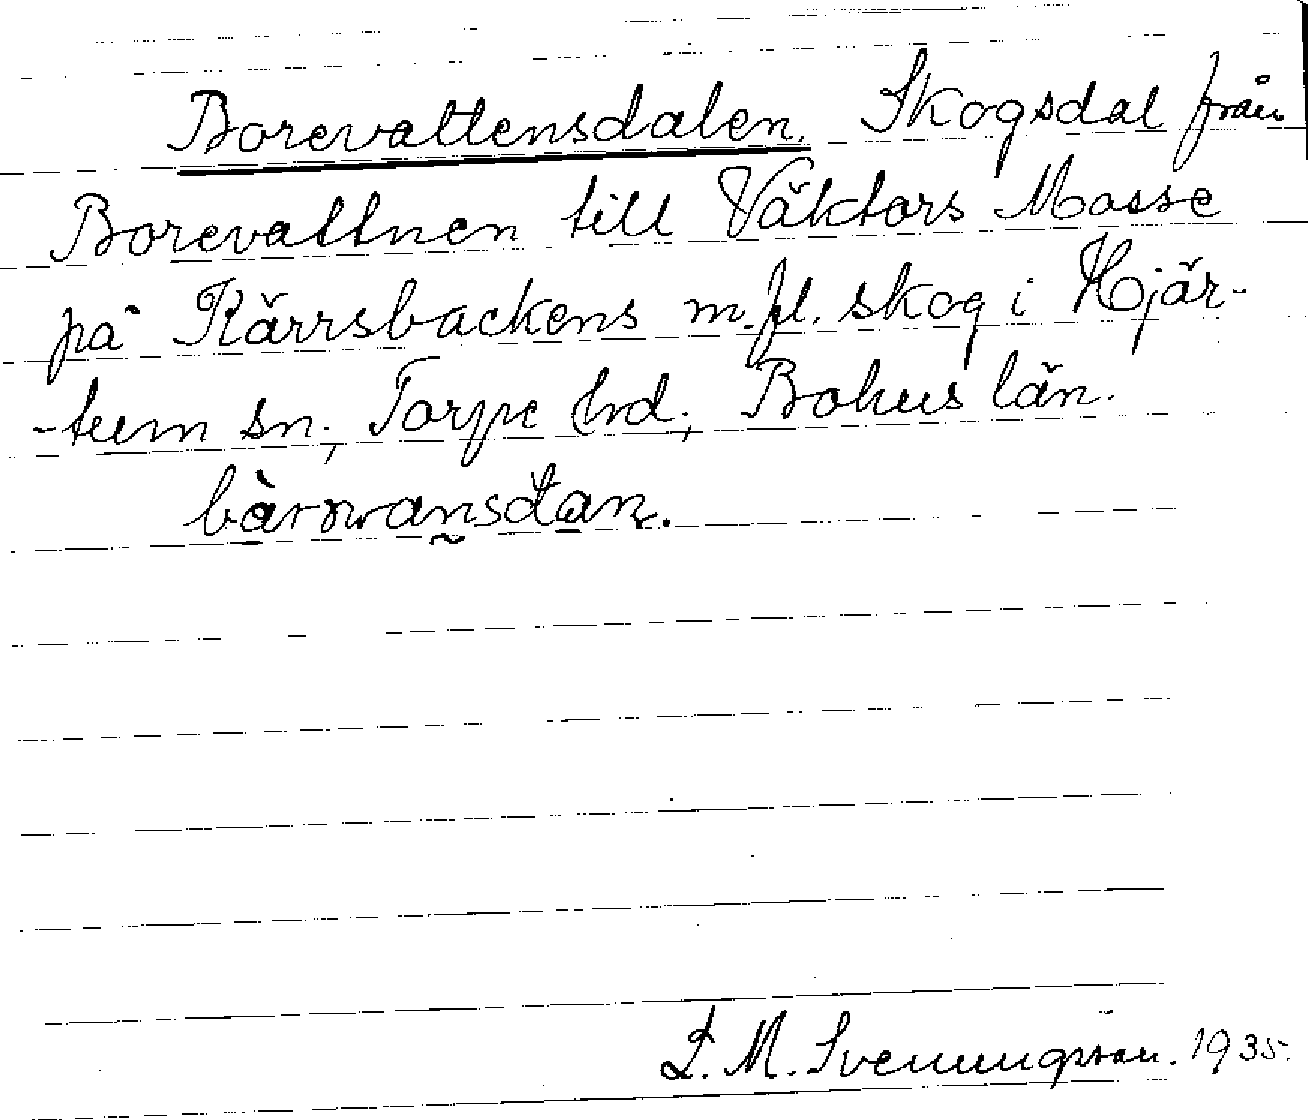 Borevattensdalen. Skogsdal från
Borevattnen till Väktors Mosse
på Kärrsbackens m.fl. skog i Hjär-
-tum sn; Torpe hd; Bohus län.
L. M. Svenungsson. 1935.